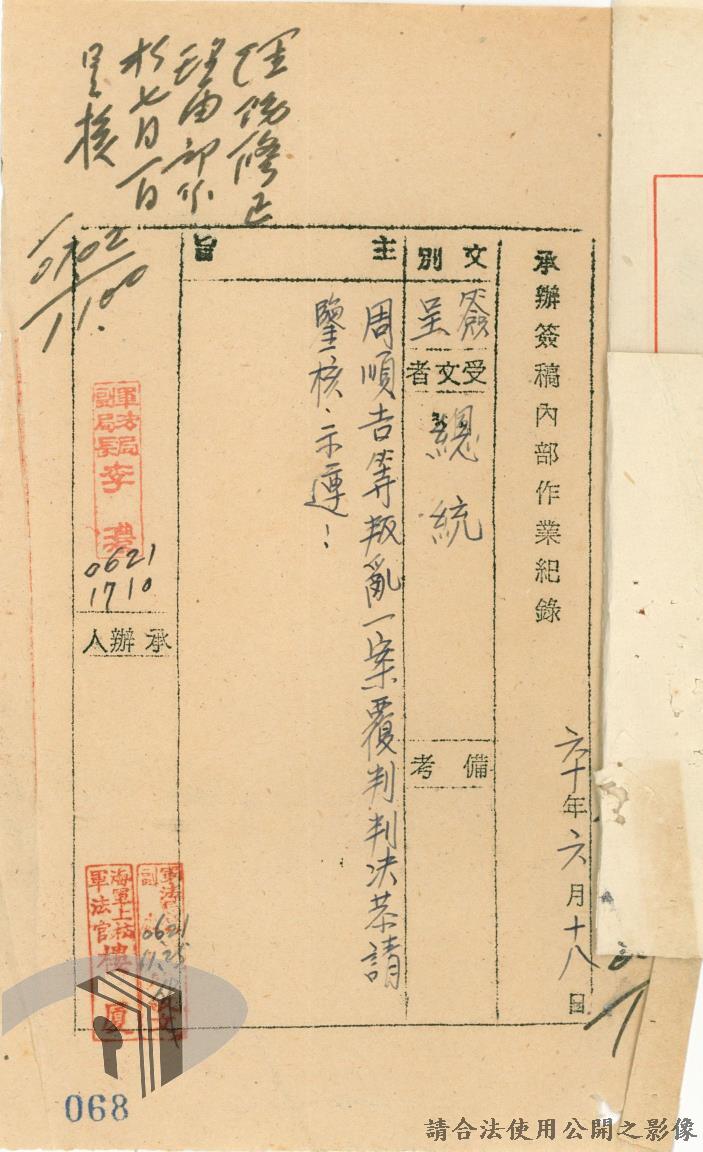 承辦簽稿內部作業紀錄
六十年六月十八日
文別
簽呈
受文者
總統
備考
主旨
周順吉等叛亂一案覆判判決恭請
鑒核、示遵！
修正
理由部份
於七月一日
呈核
0702
1100
軍法局
副局長
李
0621
1710
承辦人
海軍上校
軍法官
樓
厦
軍法
副
0621
068
請合法使用公開之影像